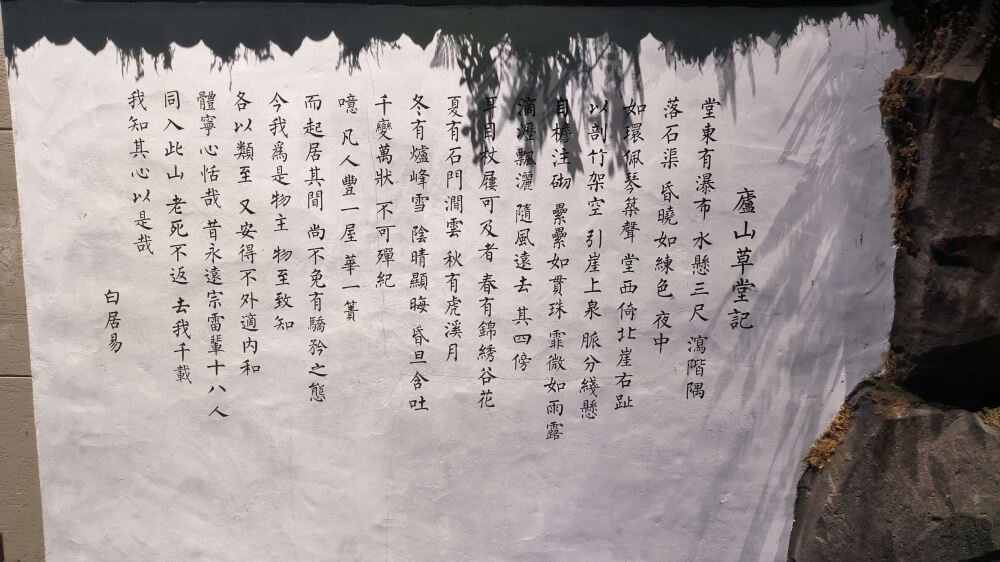 廬山草堂記
堂東有瀑布 水懸三尺 瀉階隅
落石渠 昏曉如練色 夜中
如環佩琴築聲 堂西倚北崖右趾
以剖竹架空 引崖上泉 脈分綫懸
自檐注砌 纍纍如貫珠 霏微如雨露
滴瀝飄灑 隨風遠去 其四傍
耳目杖屨可及者 春有錦綉谷花
夏有石門澗雲 秋有虎溪月
冬有爐峰雪 陰晴顯晦 昏旦含吐
千變萬狀 不可殫紀
噫 凡人豐一屋 華一簣
而起居其間 尚不免有驕矜之態
今我爲是物主 物至致知
各以類至 又安得不外適内和
體寧心恬哉 昔永遠宗雷輩十八人
同入此山 老死不返 去我千載
我知其心以是哉
白居易